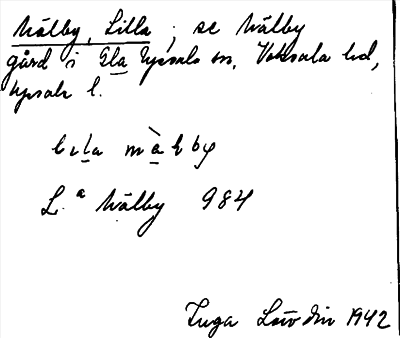 Målby, Lilla ; se Målby
gård i Gla Upsala sn, Vaksala hd,
Upsala l.
lɩla målby
L.a Målby 984
Inga Lövdin 1942